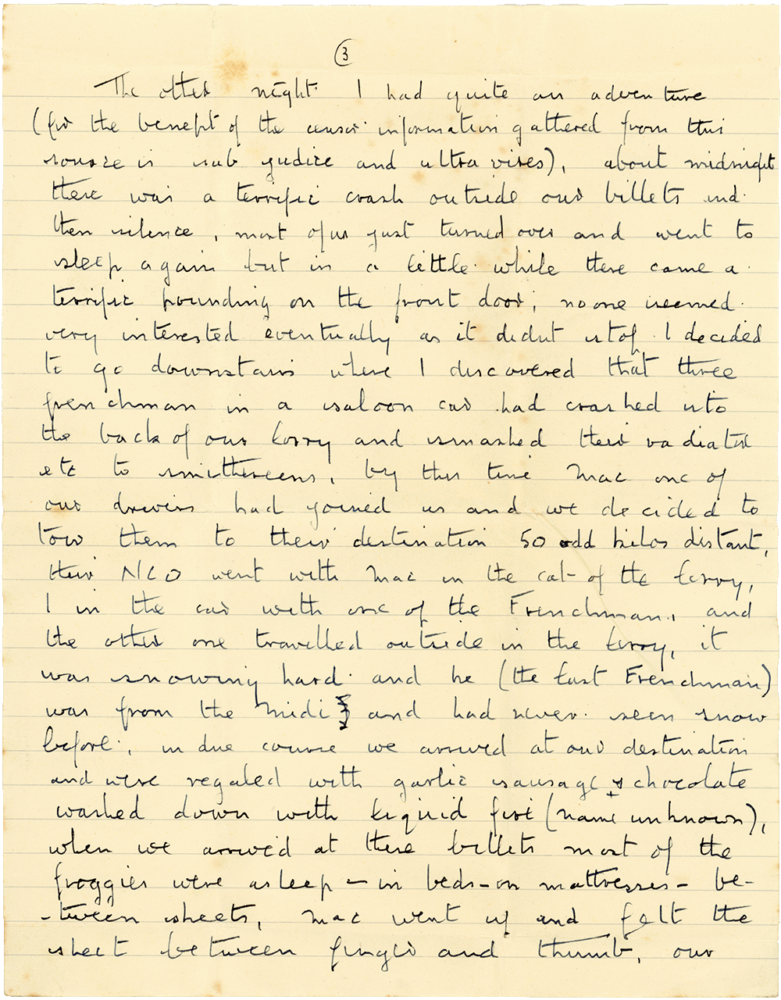 3
The other night I had quite an adventure
(for the benefit of the censor information gathered from this
source is sub judice and ultra vires), about midnight
there was a terrific crash outside our billets and
then silence, most of us just turned over and went to
sleep again but in a little while there came a
terrific pounding on the front door, no one seemed
very interested eventually as it didnt stop I decided
to go downstairs where I discovered that three
frenchman in a saloon car had crashed into
the back of our lorry and smashed their radiator
etc to smithereens, by this time Mac one of
our drivers had joined us and we decided to
tow them to their destination 50 odd kilos distant,
their NCO went with Mac in the cab of the lorry,
I in the car with one of the Frenchman, and
the other one travelled outside in the lorry, it
was snowing hard and he (the last Frenchman)
was from the Midi and had never seen snow
before, in due course we arrived at our destination
and were regaled with garlic sausage + chocolate
washed down with liquid fire (name unknown),
when we arrived at there billets most of the
froggies were asleep – in beds – on mattresses – be-
-tween sheets, Mac went up and felt the
sheet between finger and thumb, our